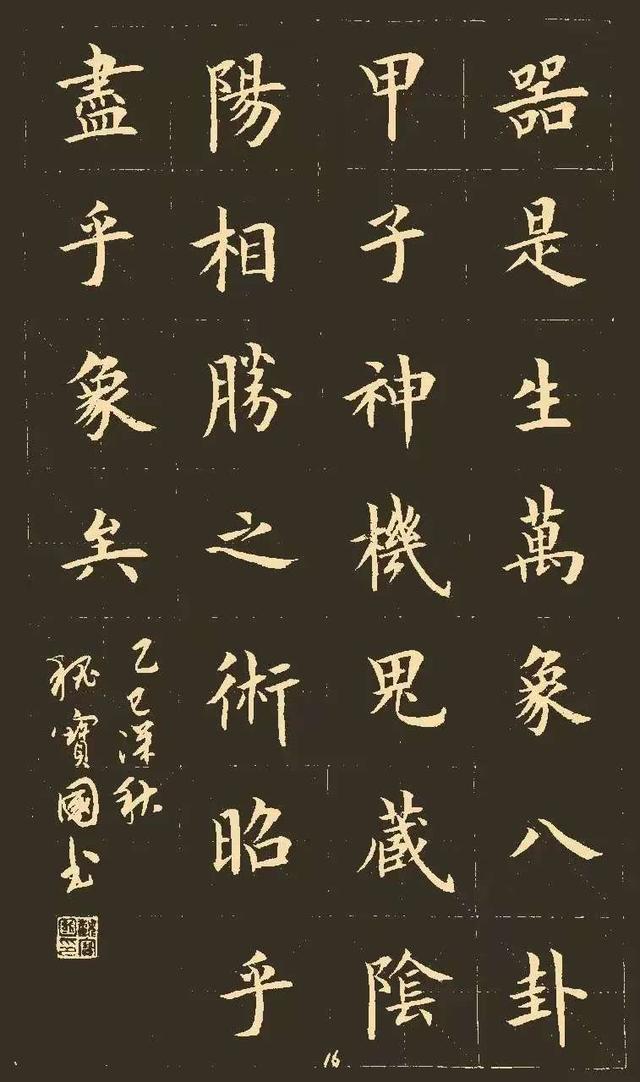 器是生萬象八卦
甲子神機鬼藏陰
陽相勝之術昭乎
盡乎象矣
乙巳深秋
寶國書
16